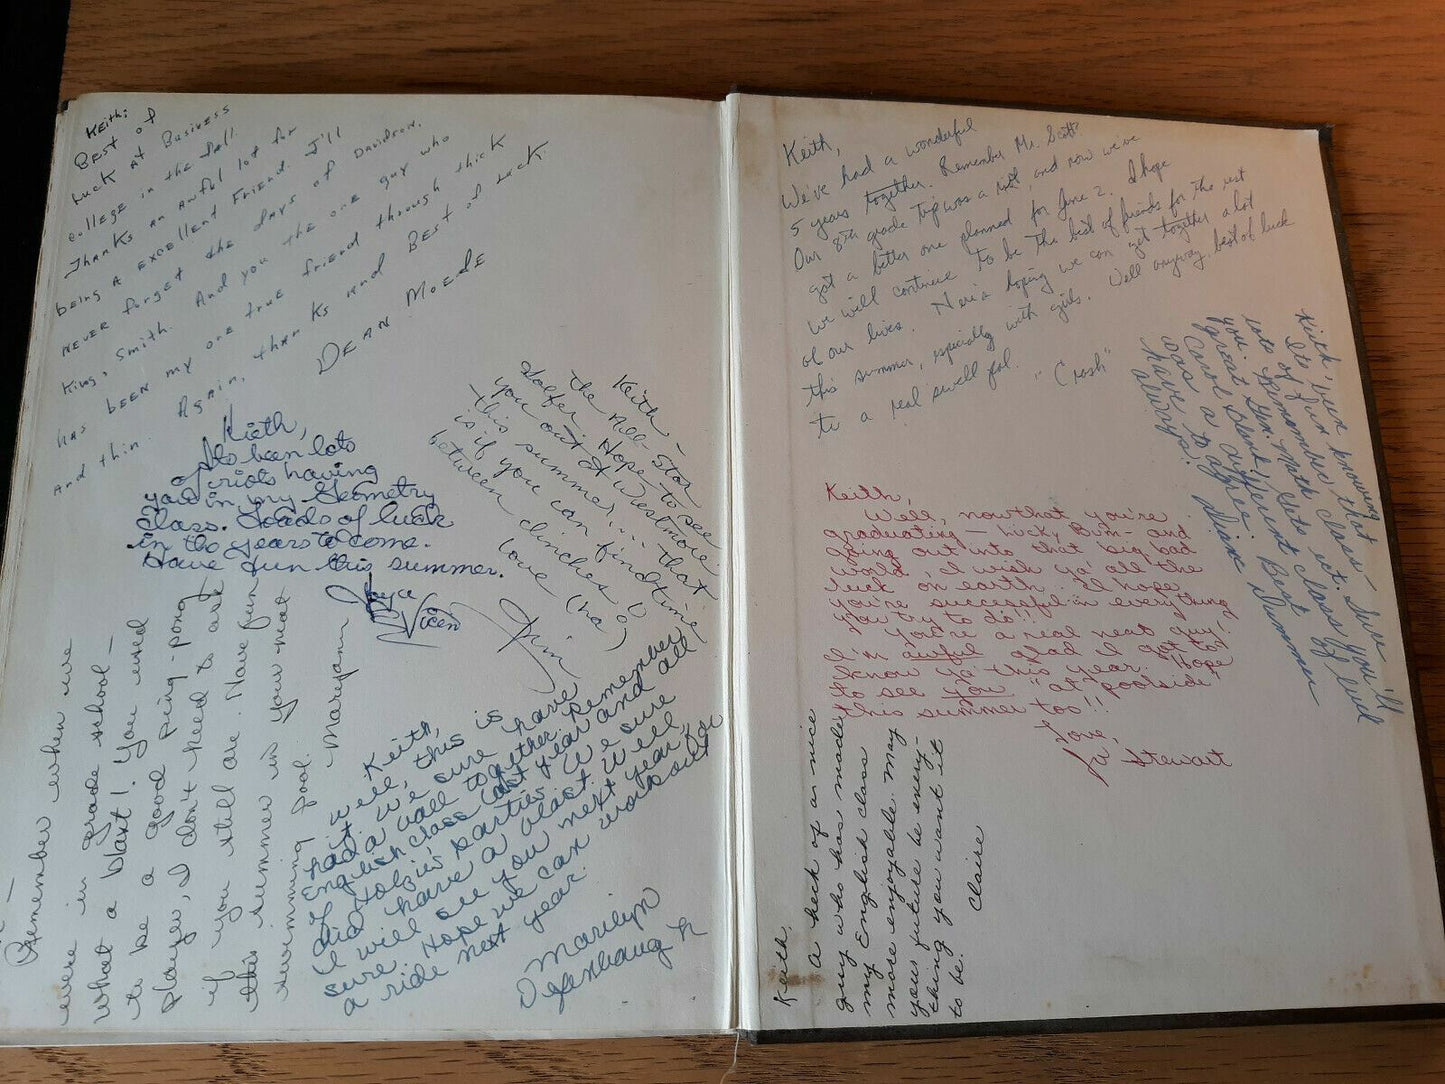 Keith:
Best of
luck at Business
college in the fall.
Thanks an awful lot for
being a excellent Friend. I'll
never forget the days of Davidson,
King, Smith. And you the one guy who
has been my one true friend through thick
and thin. Again, thanks and Best of Luck
Dean Moede
Kieth,
Its been lots
of riots having
you in my Geometry
Class. Loads of luck
in the years to come.
Have fun this summer.
Joyce
Vicen
Keith -
the All-Star
Golfer. Hope to see
you out at Westmore
this summer... that
is if you can find time
between clinches
Love (ha)
Jim
Remember when we
were in grade school -
What a blast! You used
to be a good ping-pong
player, I don't need to ask
if you still are. Have fun
this summer in your neat
swimming pool. Maryann
Keith,
Well, this is
it. We sure have
had a ball together Remember
English class last year and all
did Holzie's parties. We sure
have a blast. Well
I will see you next year for
sure. Hope we can work out
a ride next year.
Marilyn
Defenbaugh
Keith,
We've had a wonderful
5 years together. Remember Mr. Scott
Our 8th grade trip was a riot, and now we've
got a better one planned for June 2. I hope
we will continue to be the best of friends for the rest
of our lives. Here's hoping we can get together a lot
this summer, especially with girls. Well anyway, best of luck
to a real swell pal. "Crash"
Keith, were knowing that
Its fun in class -
Remember Sure you'll
you. Gen. Math lets not
great Blank class of luck
Carol different Best
was a to agree.
have
always! Diane Dummer
Keith,
Well, now that you're
graduating - Lucky Bum - and
going out into that big, bad
world, I wish ya' all the
luck on earth. I hope
you're successful in everything
you try to do!!
You're a real neat guy!
I'm awful glad I got to
know ya' this year. Hope
to see you "at poolside"
this summer too!!
Love,
Jo Stewart
Keith,
To a heck of a nice
guy who has made
my English class
more enjoyable. May
your future be every-
thing you want it
to be.
Claire